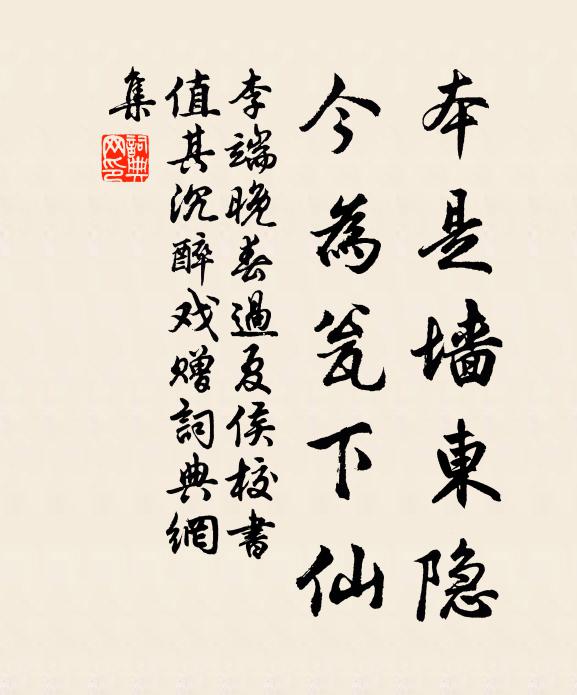 本是墙東隐
今為瓮下仙
李端晚春過夏侯校書
值其沉醉戏赠詞典網
集
詞典網印